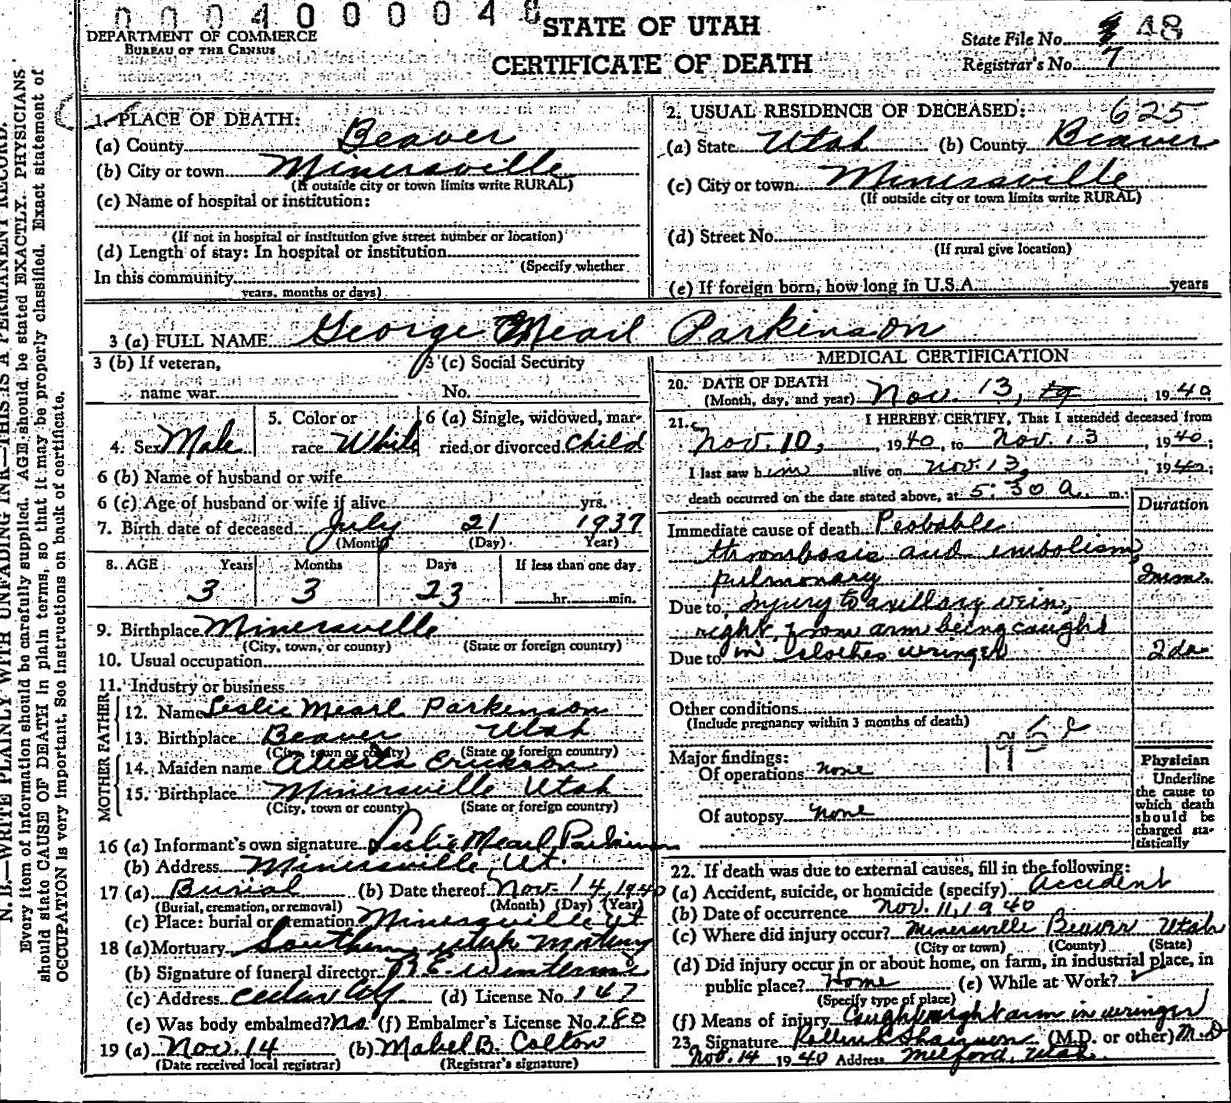 0 0 0 4 0 0 0 0 4 8
DEPARTMENT OF COMMERCE
BUREAU OF THE CENSUS
STATE OF UTAH
CERTIFICATE OF DEATH
State File No. 48
Registrar's No. 7
N. B.—WRITE PLAINLY WITH UNFADING INK—THIS IS A PERMANENT RECORD.
Every item of information should be carefully supplied. AGE should be stated EXACTLY. PHYSICIANS
should state CAUSE OF DEATH in plain terms, so that it may be properly classified. Exact statement of
OCCUPATION is very important. See instructions on back of certificate.
1. PLACE OF DEATH:
(a) County Beaver
(b) City or town Minersville
(If outside city or town limits write RURAL)
(c) Name of hospital or institution:
(If not in hospital or institution give street number or location)
(d) Length of stay: In hospital or institution
(Specify whether
In this community
years, months or days)
2. USUAL RESIDENCE OF DECEASED: 625
(a) State Utah (b) County Beaver
(c) City or town Minersville
(If outside city or town limits write RURAL)
(d) Street No.
(If rural give location)
(e) If foreign born, how long in U.S.A. years
3 (a) FULL NAME George Mearl Parkinson
3 (b) If veteran, 3 (c) Social Security
name war No.
4. Sex Male 5. Color or race White 6 (a) Single, widowed, married or divorced Child
6 (b) Name of husband or wife
6 (c) Age of husband or wife if alive yrs.
7. Birth date of deceased July 21 1937
(Month) (Day) Year)
8. AGE Years Months Days If less than one day
3 3 23 hr. min.
9. Birthplace Minersville
(City, town, or county) (State or foreign country)
10. Usual occupation
11. Industry or business
FATHER
12. Name Leslie Mearl Parkinson
13. Birthplace Beaver Utah
(City, town or county) (State or foreign country)
MOTHER
14. Maiden name Alberta Erickson
15. Birthplace Minersville Utah
(City, town or county) (State or foreign country)
16 (a) Informant's own signature Leslie Mearl Parkinson
(b) Address Minersville, Ut.
17 (a) Burial (b) Date thereof Nov. 14, 1940
(Burial, cremation, or removal) (Month) (Day) (Year)
(c) Place: burial or cremation Minersville Ut
18 (a) Mortuary Southern Utah Mortuary
(b) Signature of funeral director
(c) Address Cedar City (d) License No. 147
(e) Was body embalmed? No (f) Embalmer's License No. 280
19 (a) Nov. 14 (b) Mabel B. Cotton
(Date received local registrar) (Registrar's signature)
MEDICAL CERTIFICATION
20. DATE OF DEATH
(Month, day, and year) Nov. 13, 1940
21. I HEREBY CERTIFY, That I attended deceased from
Nov. 10, 1940, to Nov. 13, 1940;
I last saw him alive on Nov. 13, 1940;
death occurred on the date stated above, at 5:30 a. m.
Duration
Immediate cause of death Probable
thrombosis and embolism,
pulmonary
Due to injury to axillary vein,
right, from arm being caught
Due to in clothes wringer 2 da
Other conditions
(Include pregnancy within 3 months of death)
195
Major findings:
Of operations none
Of autopsy none
Physician
Underline
the cause to
which death
should be
charged sta-
tistically
22. If death was due to external causes, fill in the following:
(a) Accident, suicide, or homicide (specify) Accident
(b) Date of occurrence Nov. 11, 1940
(c) Where did injury occur? Minersville Beaver Utah
(City or town) (County) (State)
(d) Did injury occur in or about home, on farm, in industrial place, in
public place? Home (e) While at Work?
(Specify type of place)
(f) Means of injury Caught right arm in wringer
23. Signature (M.D. or other) M.D
Nov. 14 1940 Address Milford, Utah.